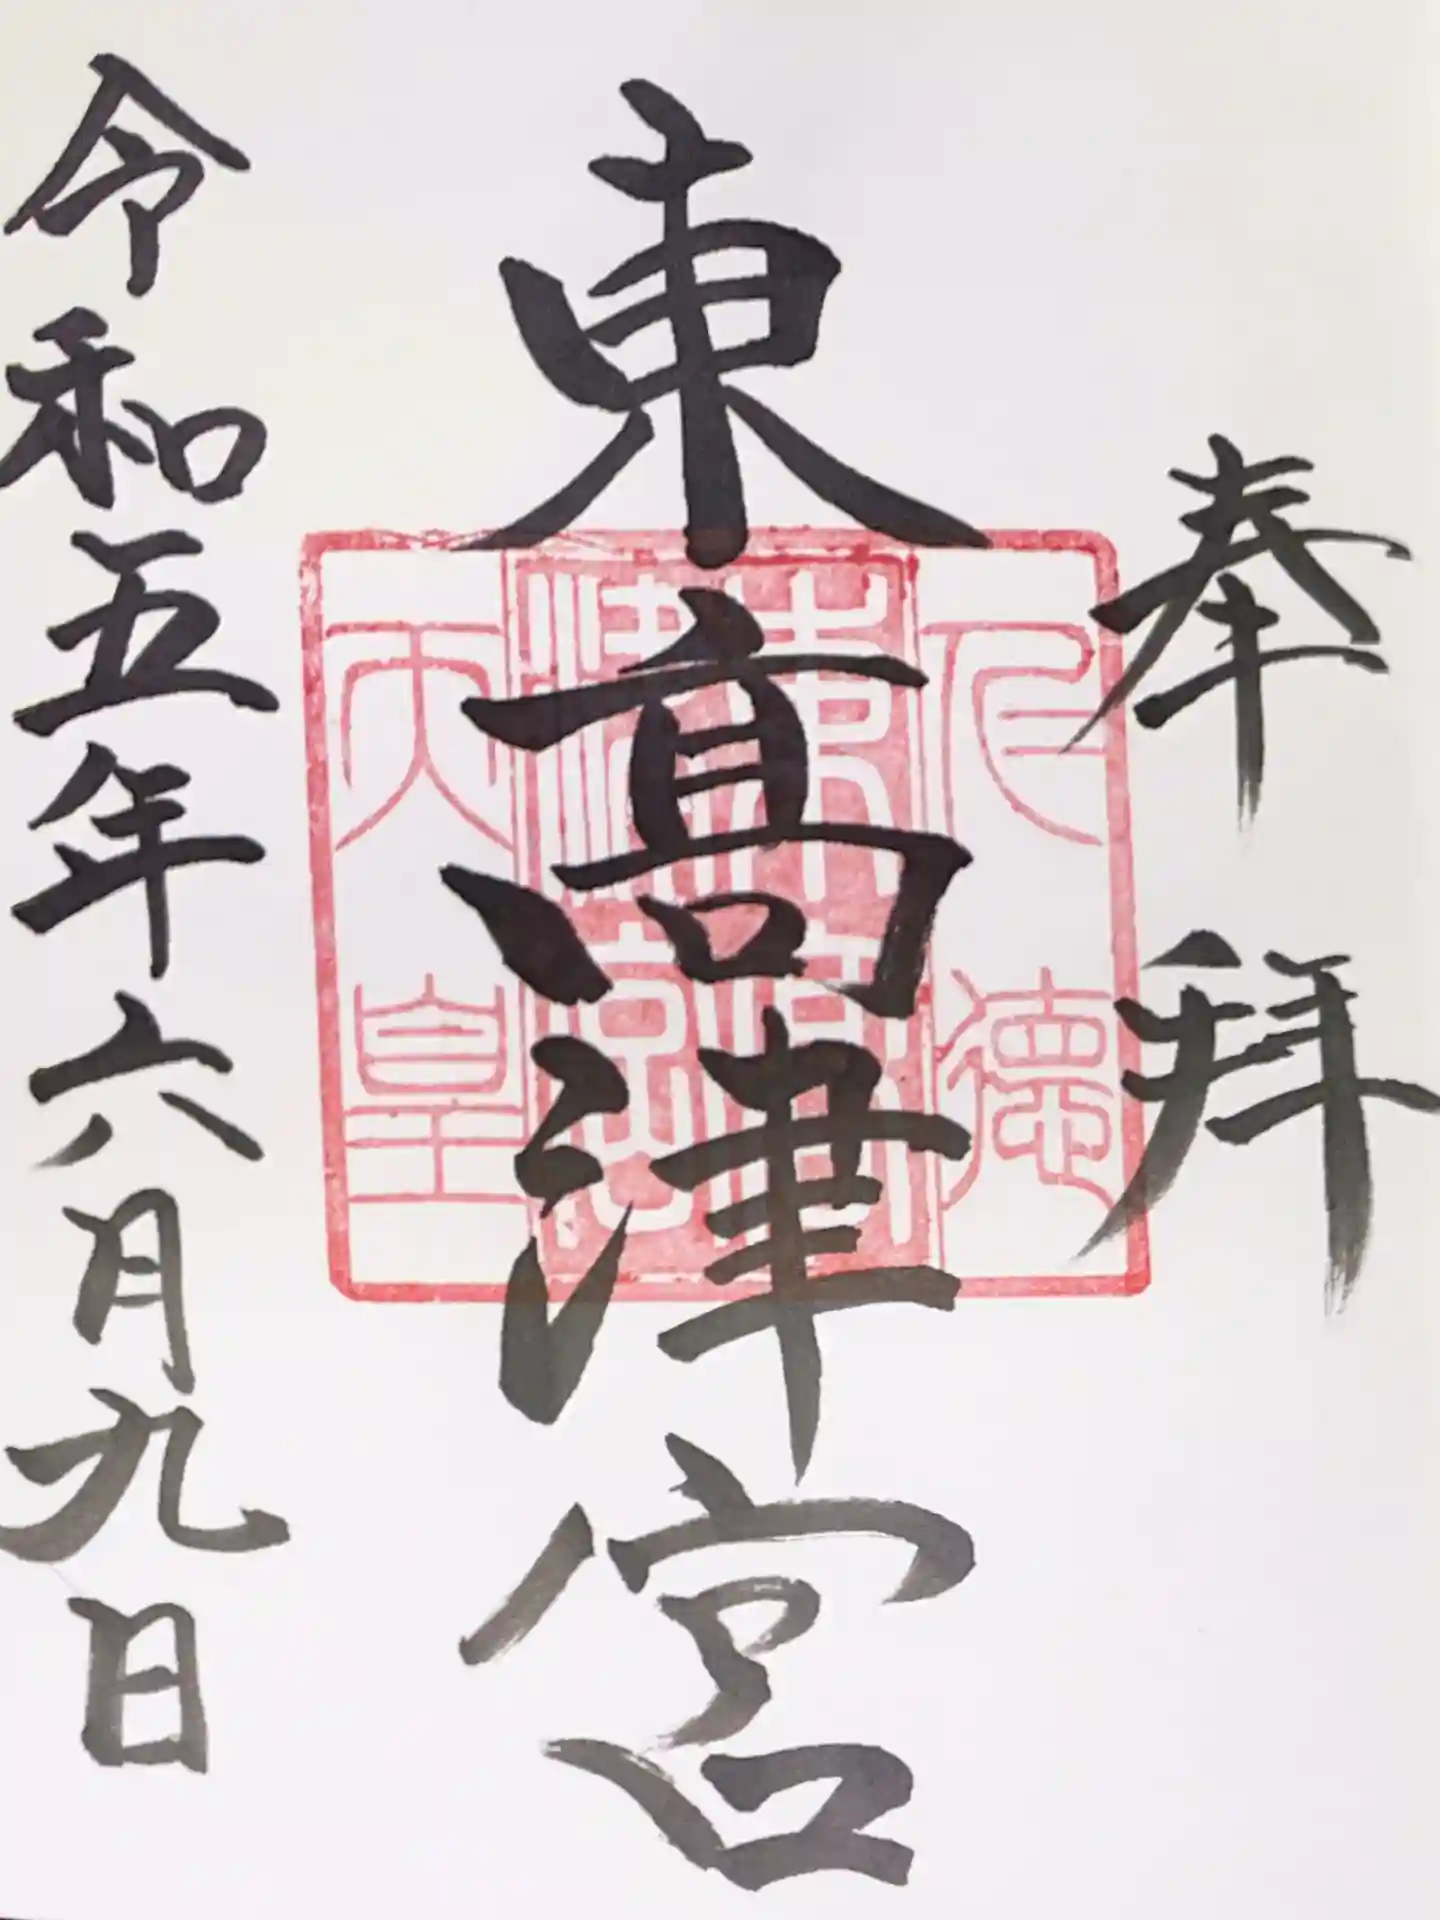 奉拜
東髙津宮
仁德
東髙
津宮
天皇
令和五年六月九日